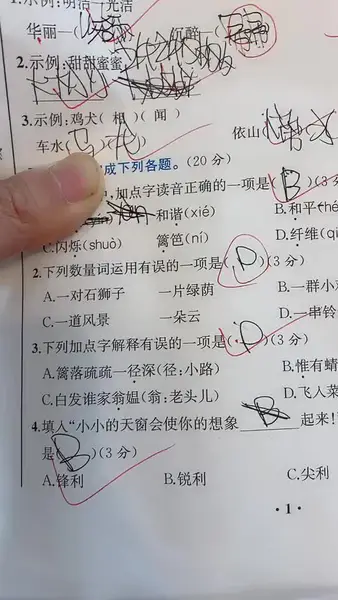 1.示例:明洁—光洁
华丽—( 沉醉—(
2.示例:甜甜蜜蜜
3.示例:鸡犬(相)(闻)
车水( )( ) 依山(
成下列各题。(20分)
加点字读音正确的一项是(B)(3分
和谐(xié) B.和平(hé
C.闪烁(shuò) 篱笆(ní) D.纤维(qi
2.下列数量词运用有误的一项是(D)(3分)
A.一对石狮子 一片绿荫 B.一群小
C.一道风景 一朵云 D.一串铃
3.下列加点字解释有误的一项是(D)(3分)
A.篱落疏疏一径深(径:小路) B.惟有蜻
C.白发谁家翁媪(翁:老头儿) D.飞入菜
4.填入“小小的天窗会使你的想象 B 起来!
是(B)(3分)
A.锋利 B.锐利 C.尖利
·1·